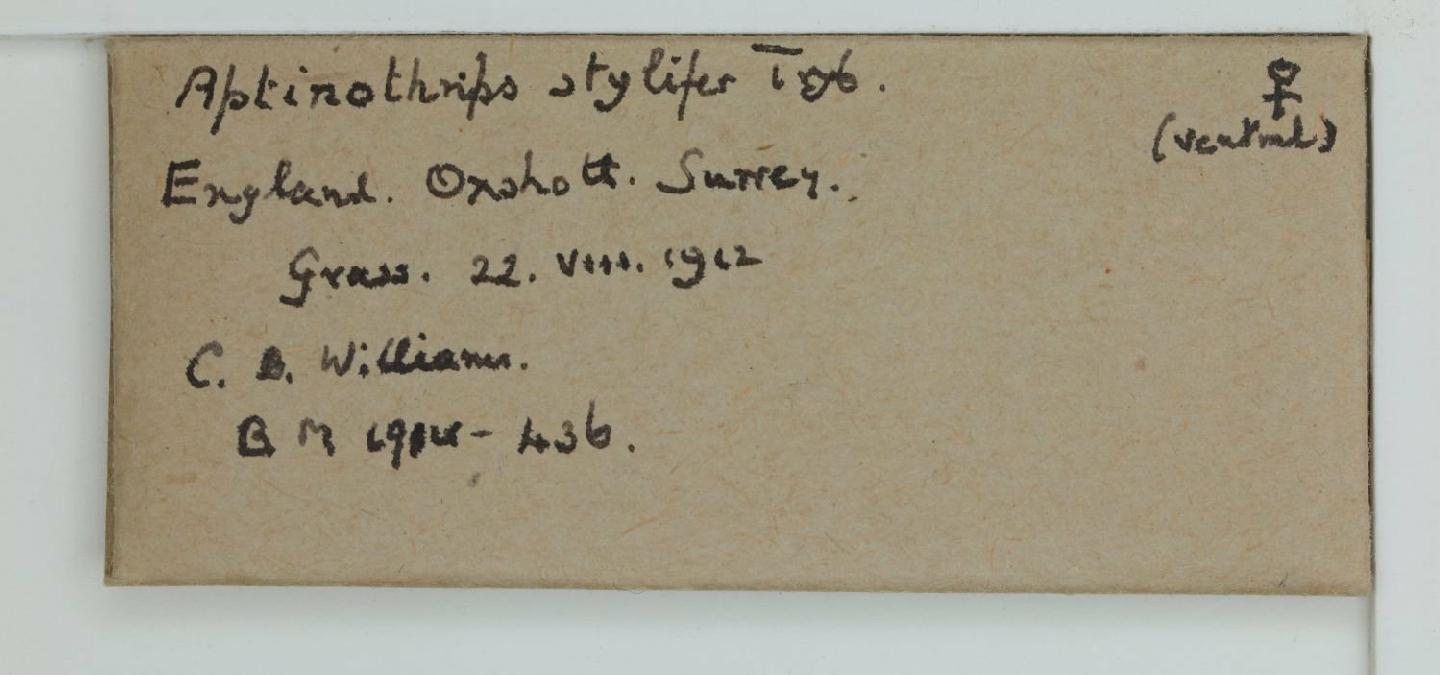 Aptinothrips stylifer Tryb.
♀
(ventral)
England. Oxshott. Surrey.
Grass. 22. VIII. 1912
C. B. Williams.
B M 1914-436.